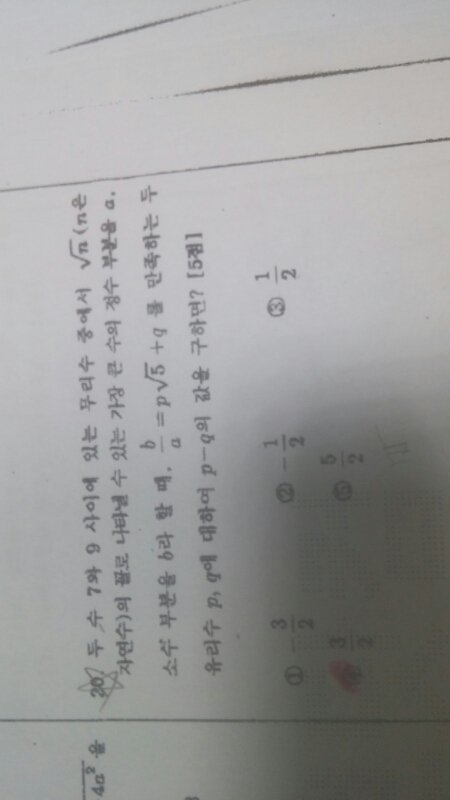 4a² 을
20. 두 수 7와 9 사이에 있는 무리수 중에서 √n (n은
자연수)의 꼴로 나타낼 수 있는 가장 큰 수의 정수 부분을 a,
소수 부분을 b라 할 때, b/a = p√5 + q 를 만족하는 두
유리수 p, q에 대하여 p-q의 값을 구하면? [5점]
① -3/2 ② -1/2 ③ 1/2
④ 3/2 ⑤ 5/2